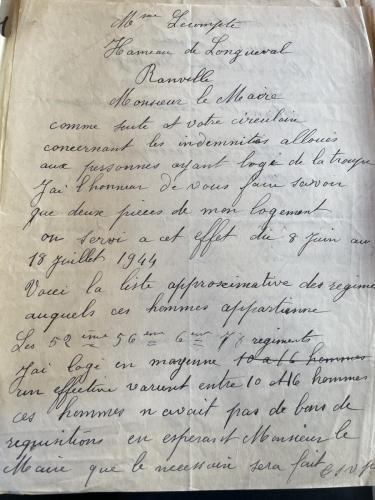 Mme Lecompte
Hameau de Longueval
Ranville
Monsieur le Maire
comme suite at votre circulaire
concernant les indemnités alloués
aux personnes ayant logé de la troupe
J'ai l'honneur de vous faire savoir
que deux pièces de mon logement
on servi a cet effet du 8 Juin au
18 Juillet 1944
Voici la liste approximative des regime
auquels ces hommes appartienne
Les 52 ème 56 eme 6 eme regiments
J'ai logé en moyenne 10 a 16 hommes
un effective varient entre 10 A 16 hommes
ces hommes n'avait pas de bons de
requisitions en esperant Monsieur le
Maire que le necessaire sera fait